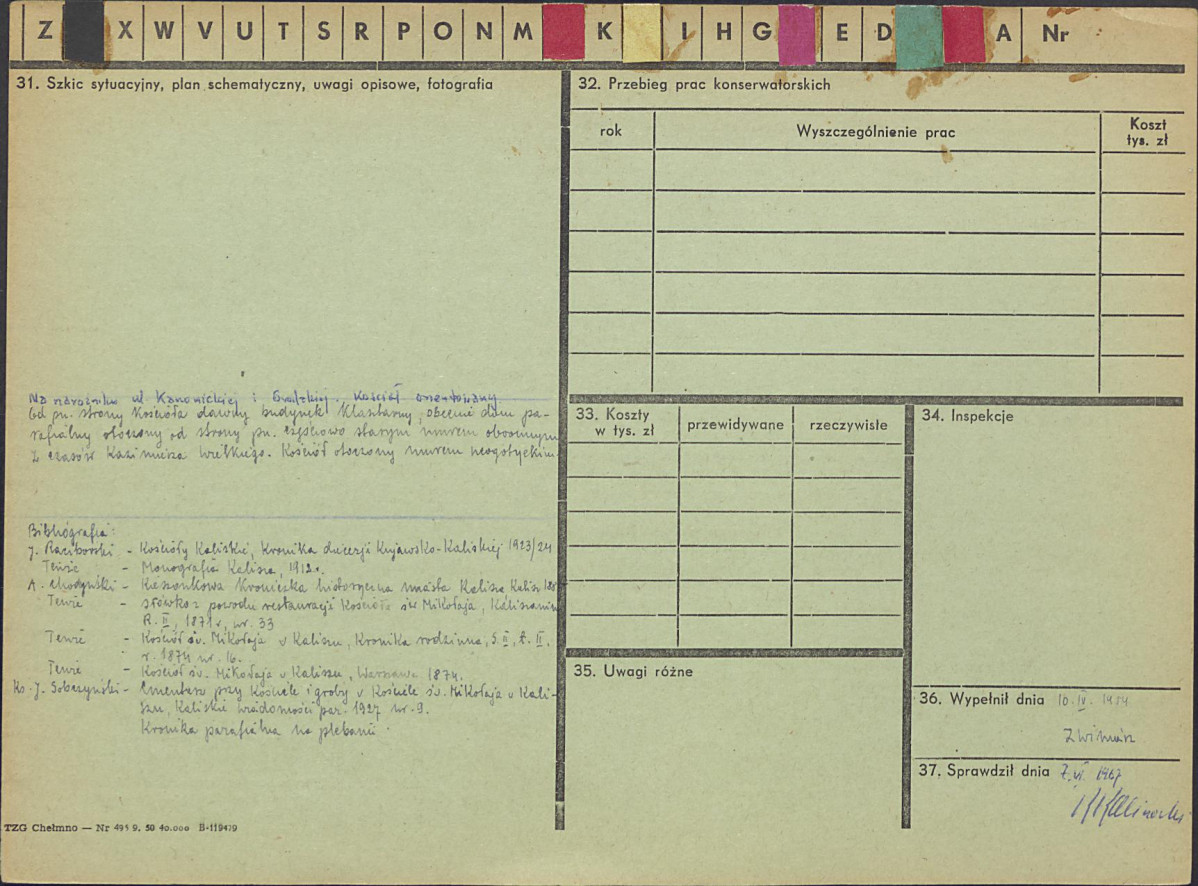 Z X W V U T S R P O N M K I H G E D A Nr
31. Szkic sytuacyjny, plan schematyczny, uwagi opisowe, fotografia
Na narożniku ul Kanonickiej i Grodzkiej. Kościół orientowany
Od pn. strony Kościoła dawny budynek klasztorny, obecnie dom pa-
rafialny otoczony od strony pn. częściowo starym murem obronnym
z czasów Kazimierza Wielkiego. Kościół otoczony murem neogotyckim
Bibliografia:
J. Raciborski - Kościoły Kaliskie, Kronika diecezji Kujawsko-Kaliskiej 1923/24
Tenże - Monografia Kalisza, 1912r.
A. Chodyński - Kieszonkowa kroniczka historyczna miasta Kalisza Kalisz
Tenże - Słówko z powodu restauracji Kościoła św Mikołaja, Kaliszanin
R. II, 1871r, nr. 33
Tenże - Kościół św. Mikołaja w Kaliszu, Kronika rodzinna, S. II, t. II,
r. 1874 nr. 16.
Tenże - Kościół św. Mikołaja w Kaliszu, Warszawa 1874.
Ks. J. Sobczyński - Cmentarz przy kościele i groby w Kościele św. Mikołaja w Kali-
szu, Kaliskie wiadomości par. 1927 nr-9.
Kronika parafialna na plebanii
TZG Chełmno — Nr 495 9. 50 40.000 B-119479
32. Przebieg prac konserwatorskich
rok Wyszczególnienie prac Koszt
tys. zł
33. Koszty
w tys. zł przewidywane rzeczywiste
34. Inspekcje
35. Uwagi różne
36. Wypełnił dnia 10. IV. 1959
37. Sprawdził dnia 7. VI. 1967